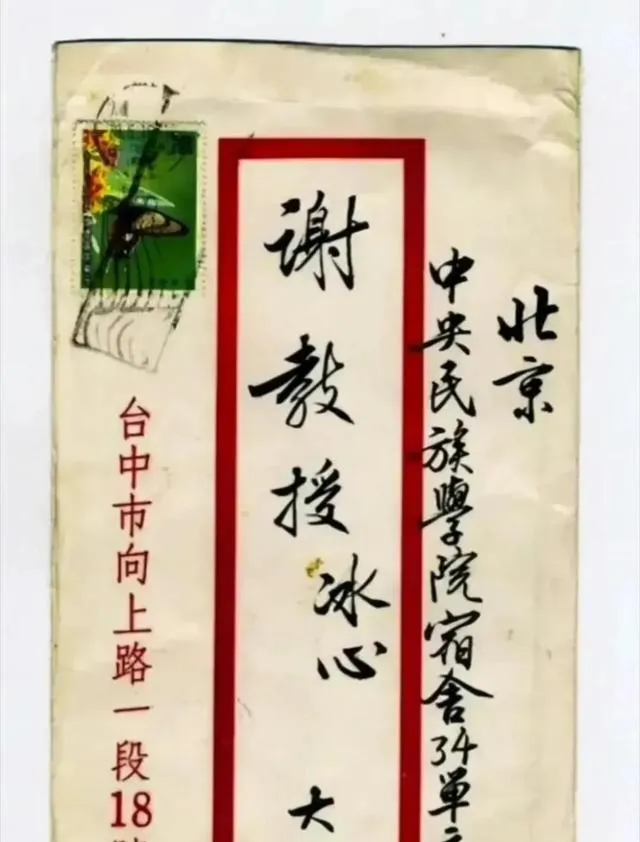 北京
中央民族學院宿舍34單
谢教授冰心
大
台中市向上路一段18